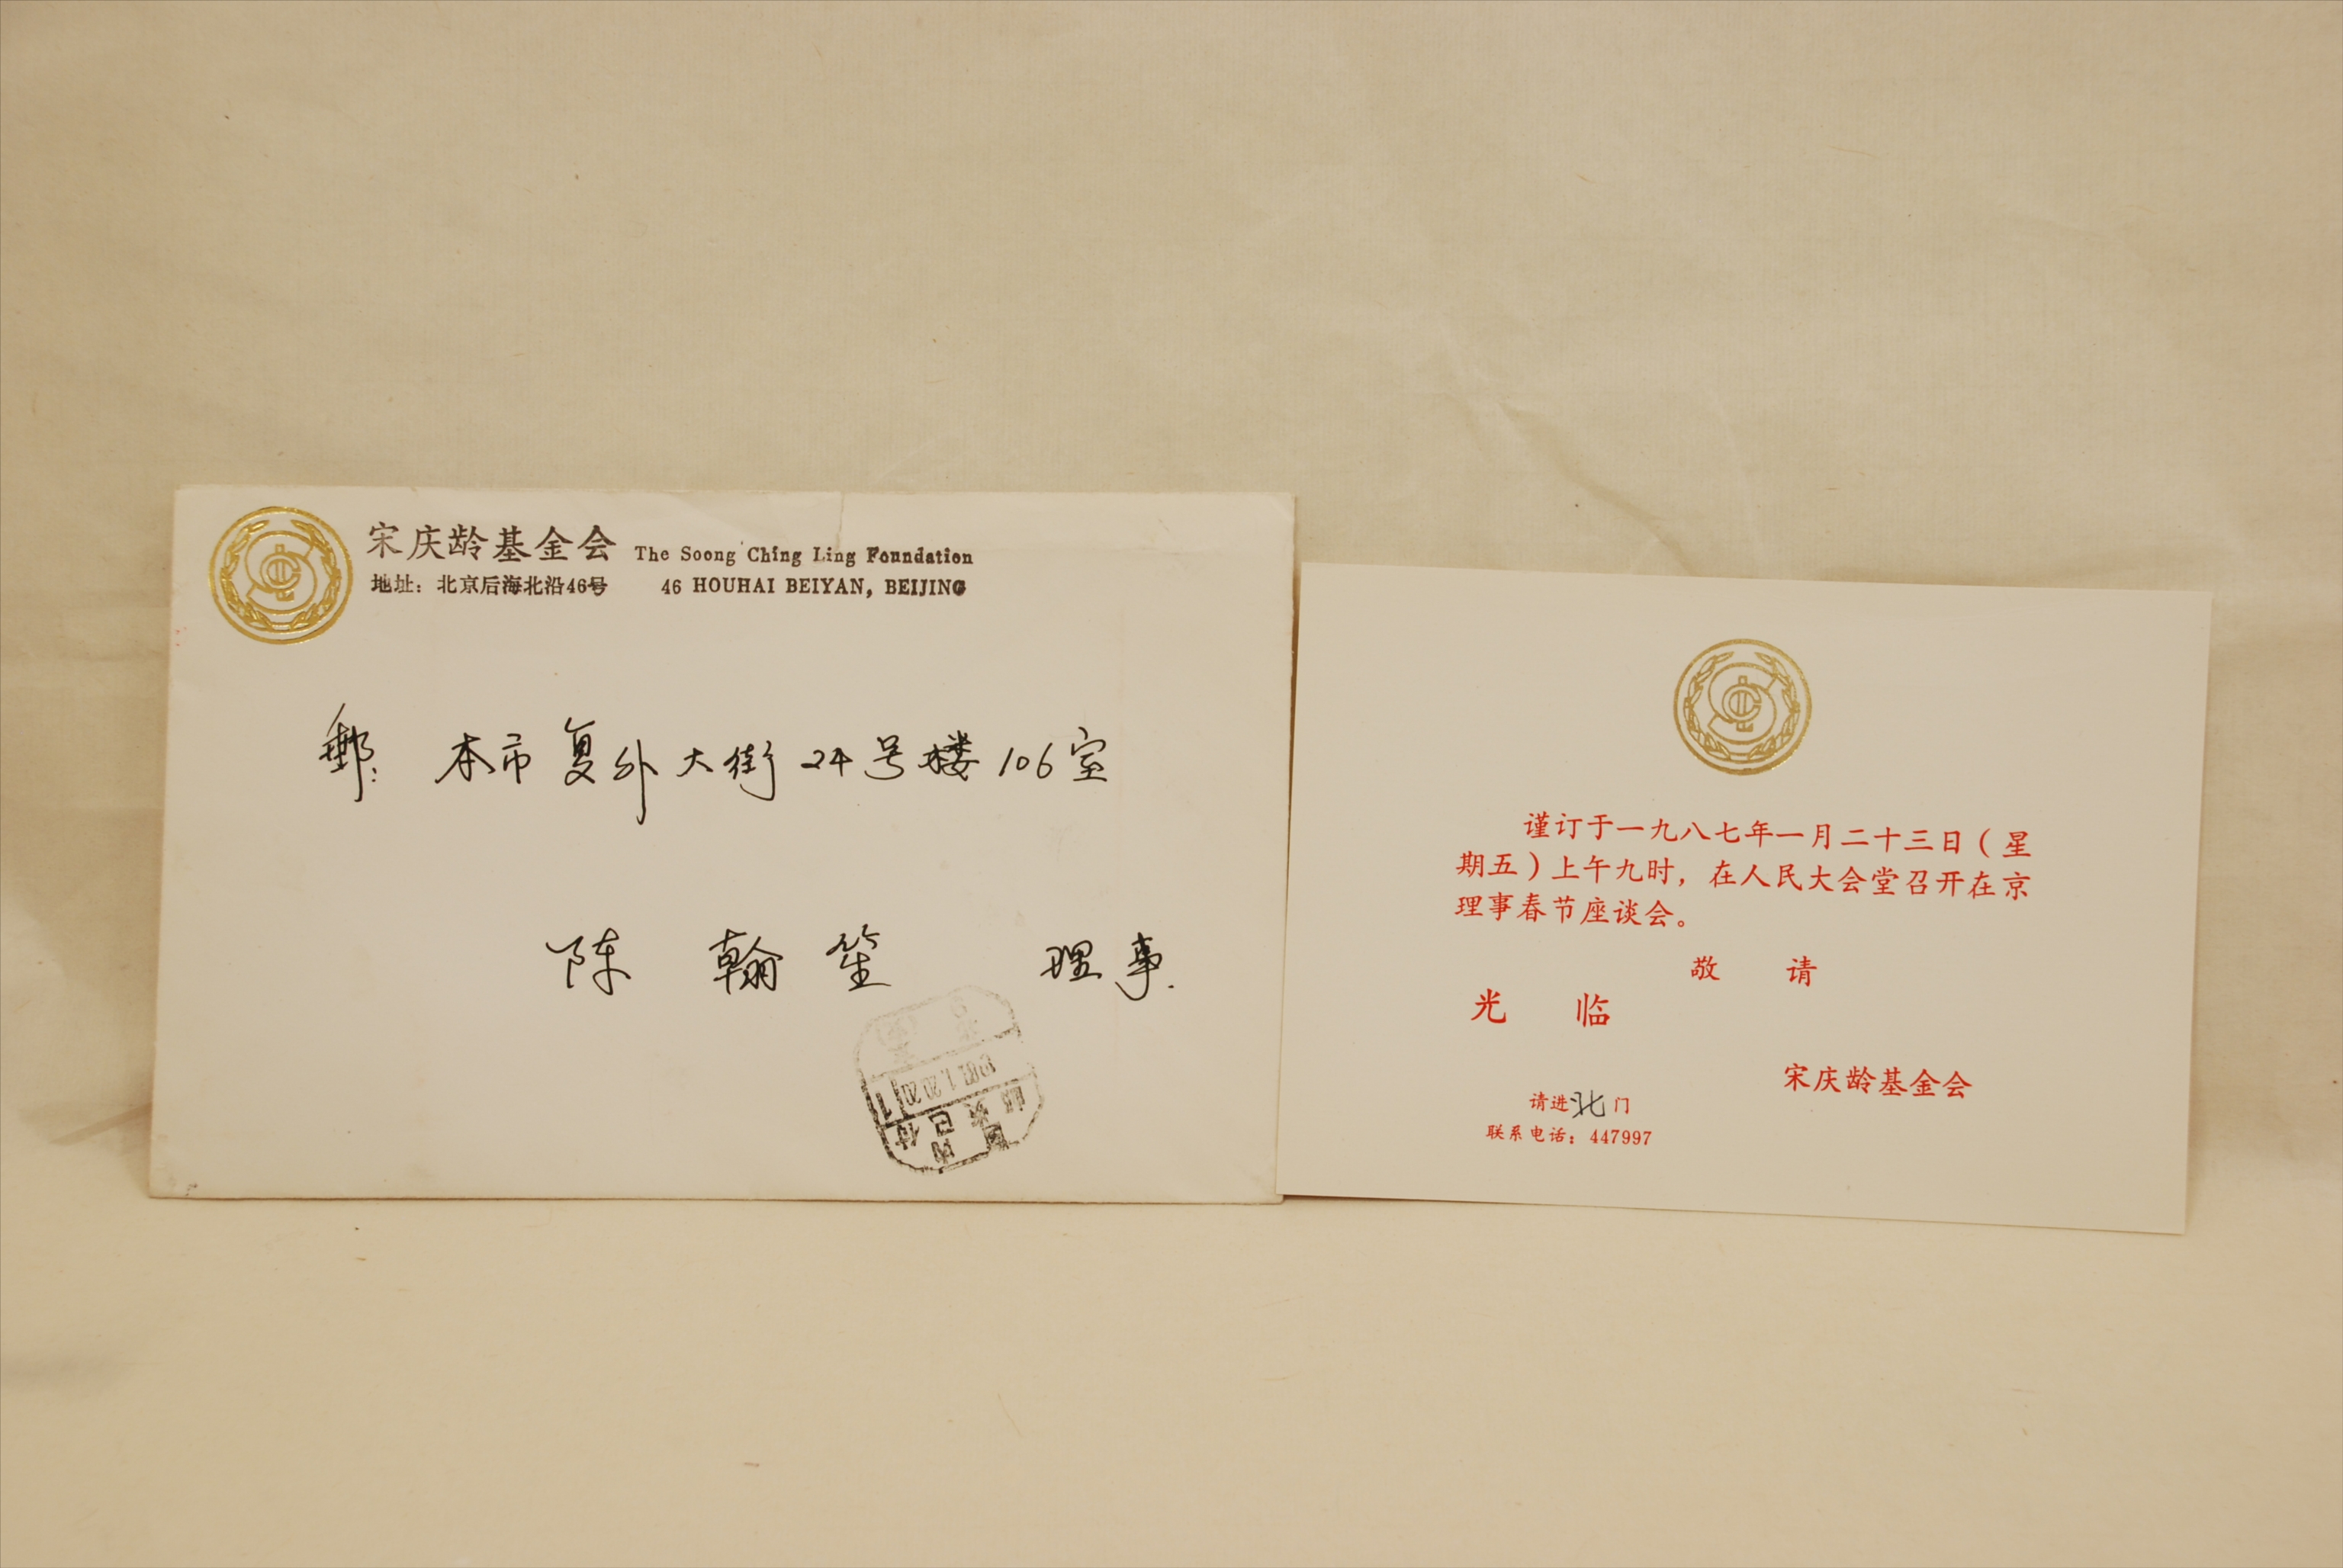 宋庆龄基金会 The Soong Ching Ling Foundation
地址：北京后海北沿46号 46 HOUHAI BEIYAN, BEIJING
郵: 本市复外大街24号楼106室
陈翰笙 理事.
1987.1.20.20
国内
邮资已付
谨订于一九八七年一月二十三日（星
期五）上午九时，在人民大会堂召开在京
理事春节座谈会。
敬请
光临
宋庆龄基金会
请进北门
联系电话：447997